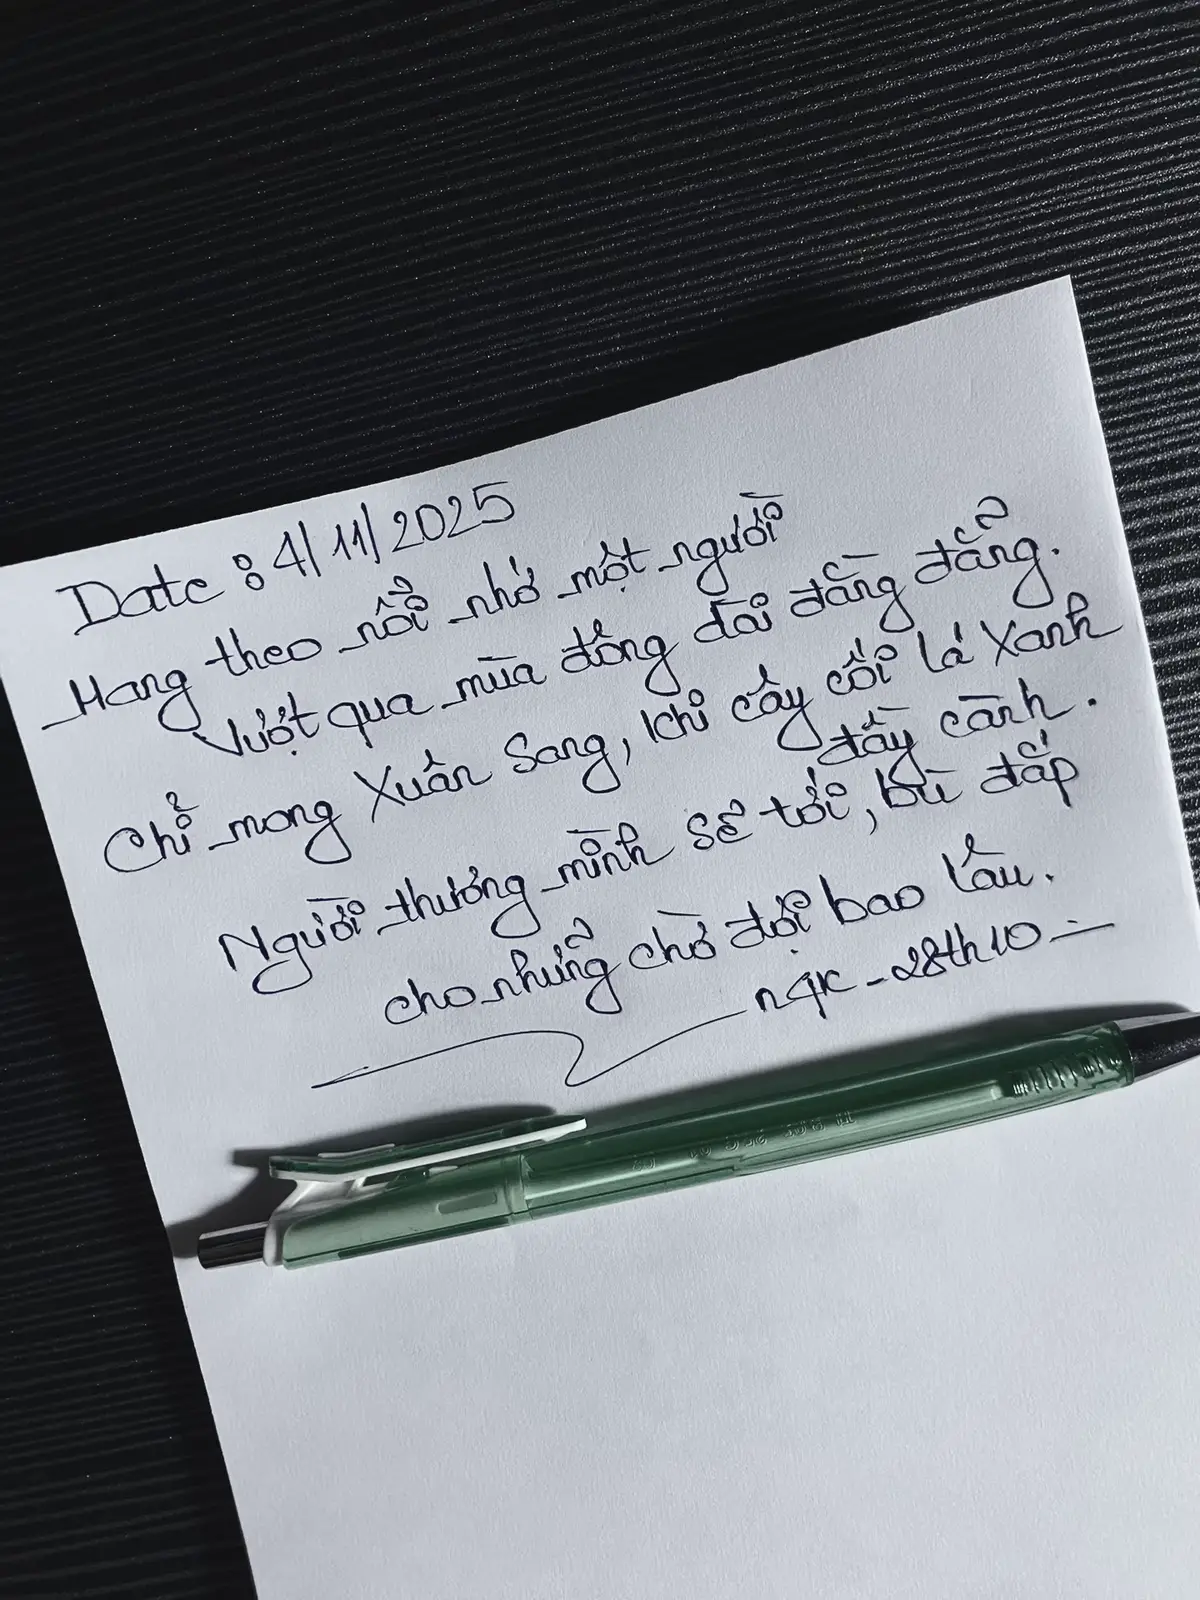 Date : 4/11/2025
Mang theo nỗi nhớ một người
Vượt qua mùa đông dài đằng đẵng.
Chỉ mong Xuân sang, khi cây cối lá xanh
đầy cành.
Người thương mình sẽ tới, bù đắp
cho những chờ đợi bao lâu.
nqk - 28th10